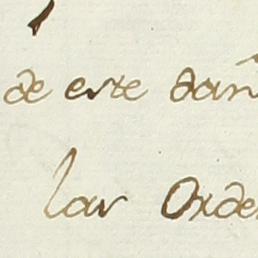 de este dan
las Orde